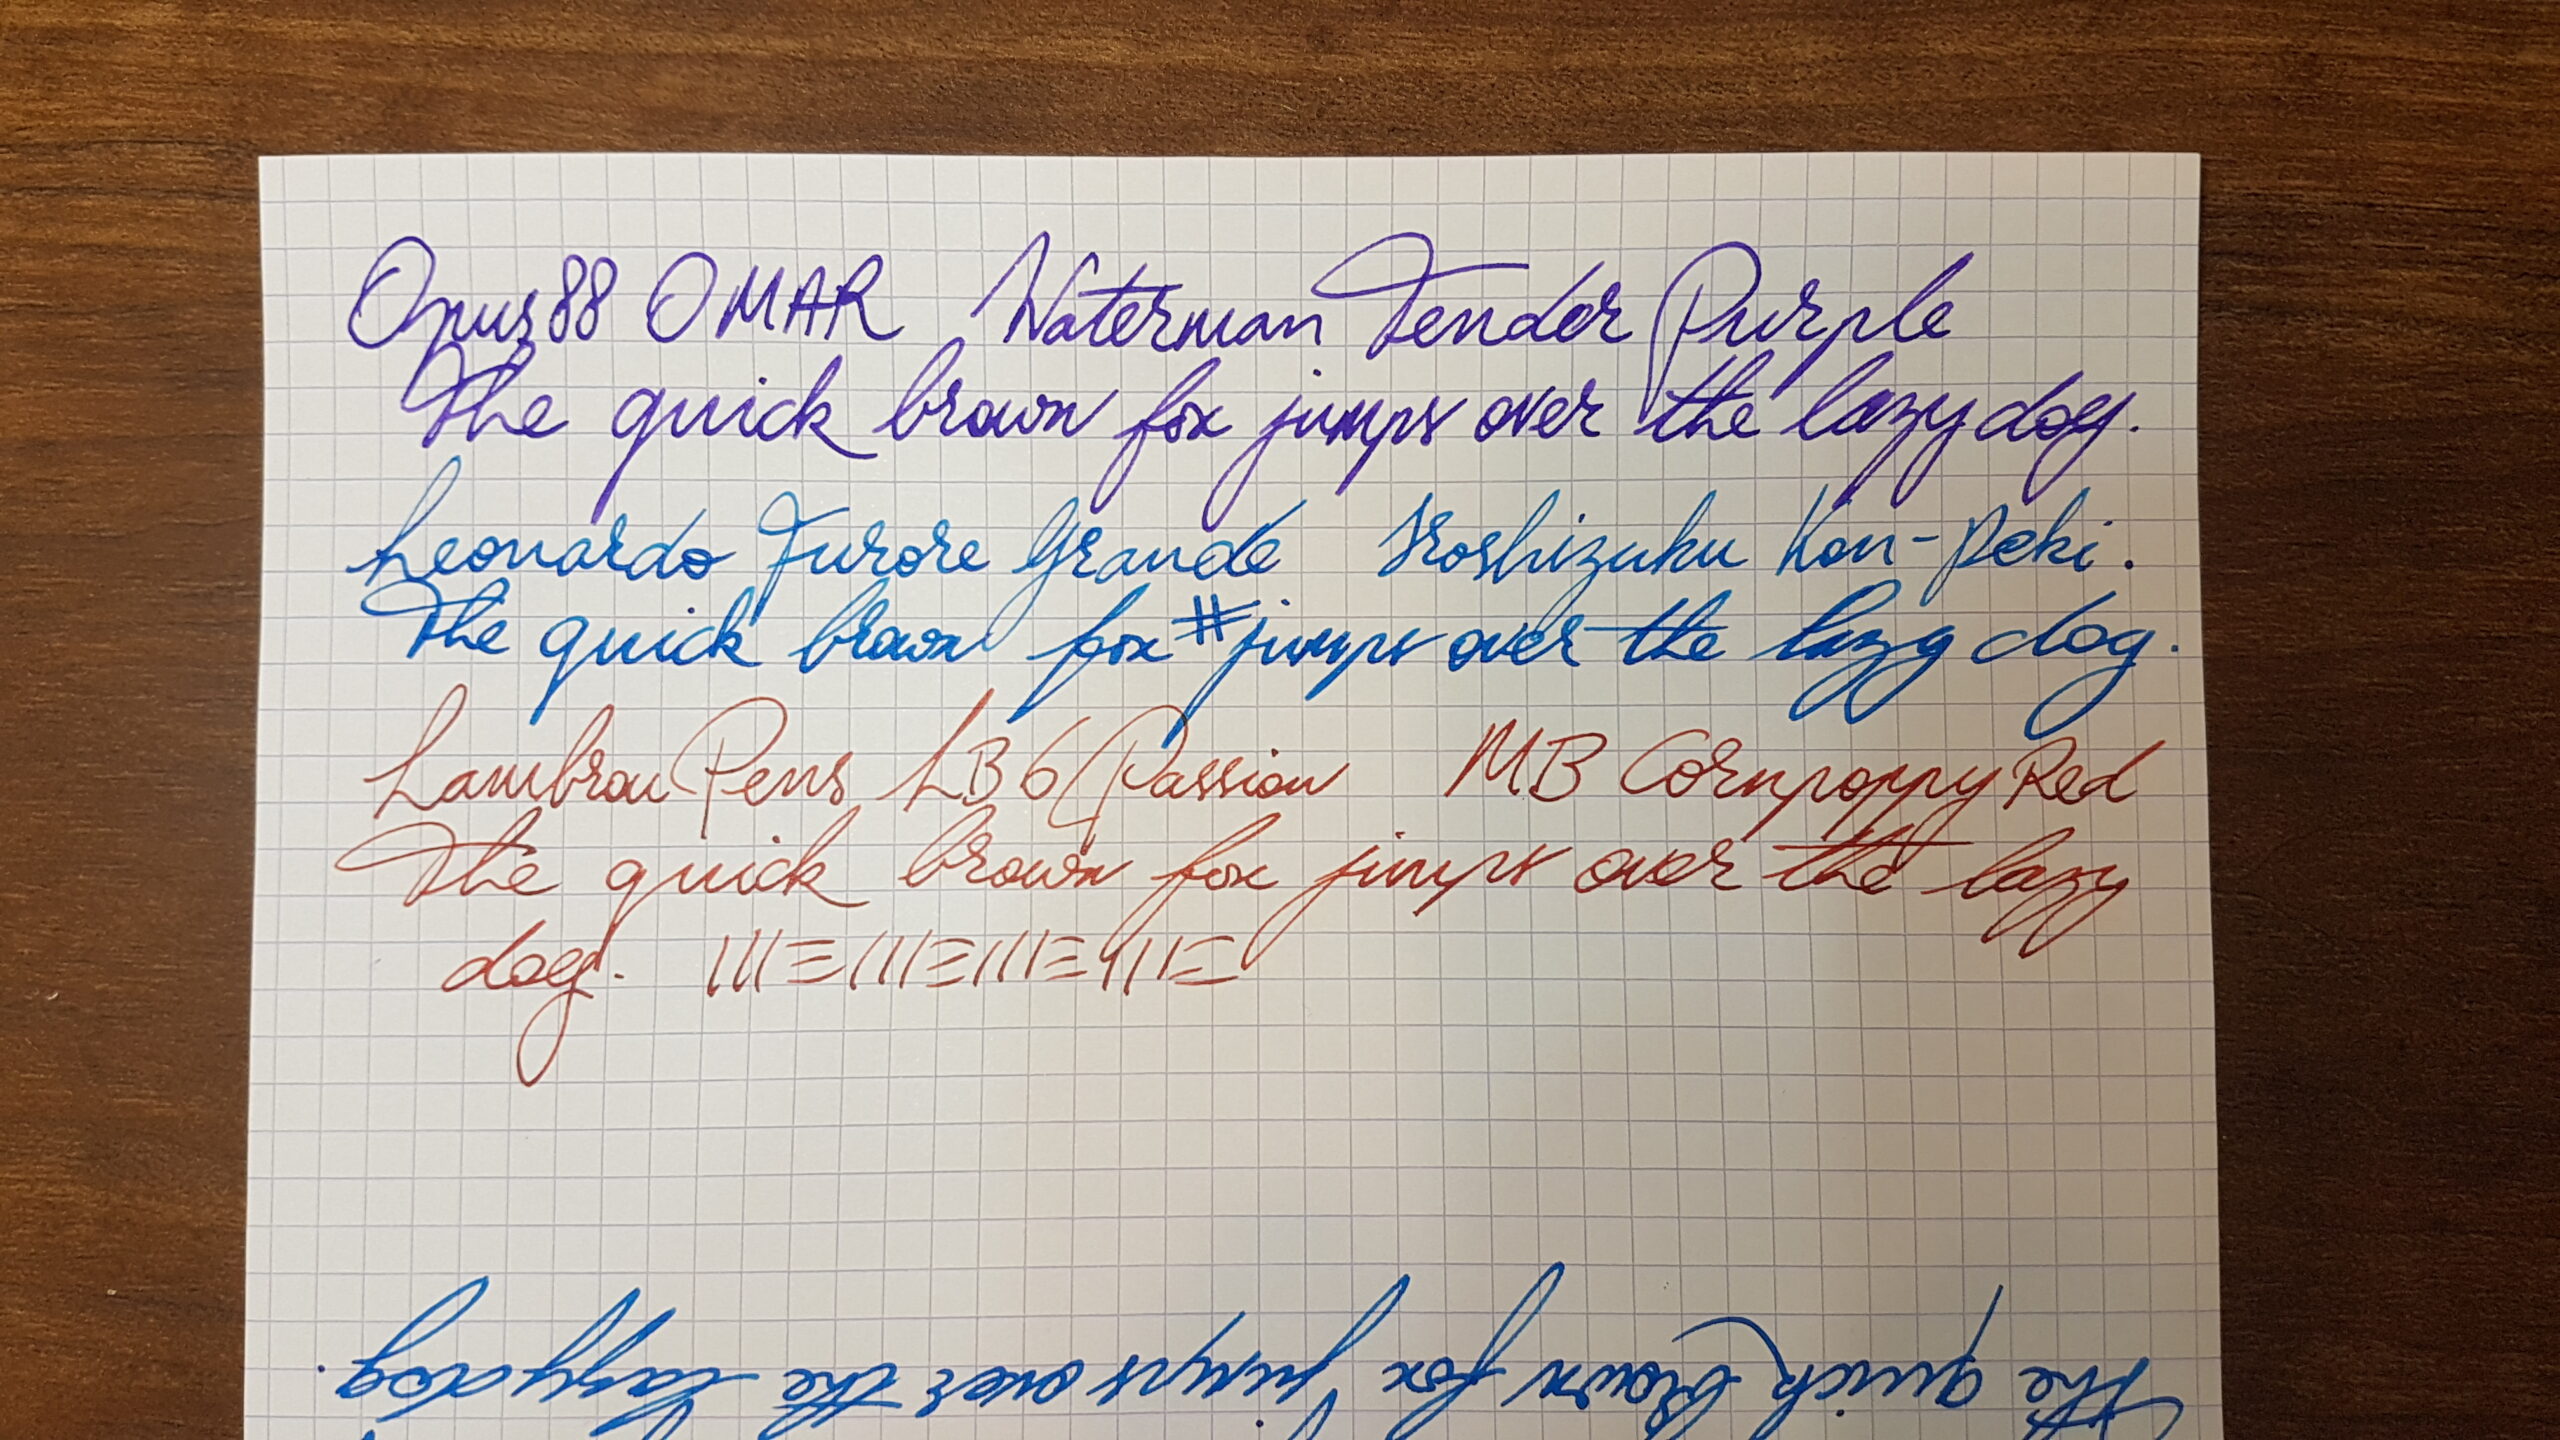 Opus 88 OMAR Waterman Tender Purple
The quick brown fox jumps over the lazy dog.
Leonardo Furore Grande Iroshizuku Kon-Peki.
The quick brown fox # jumps over the lazy dog.
Lambrou Pens LB6 Passion MB Cornpoppy Red
The quick brown fox jumps over the lazy
dog.
The quick brown fox jumps over the lazy dog.